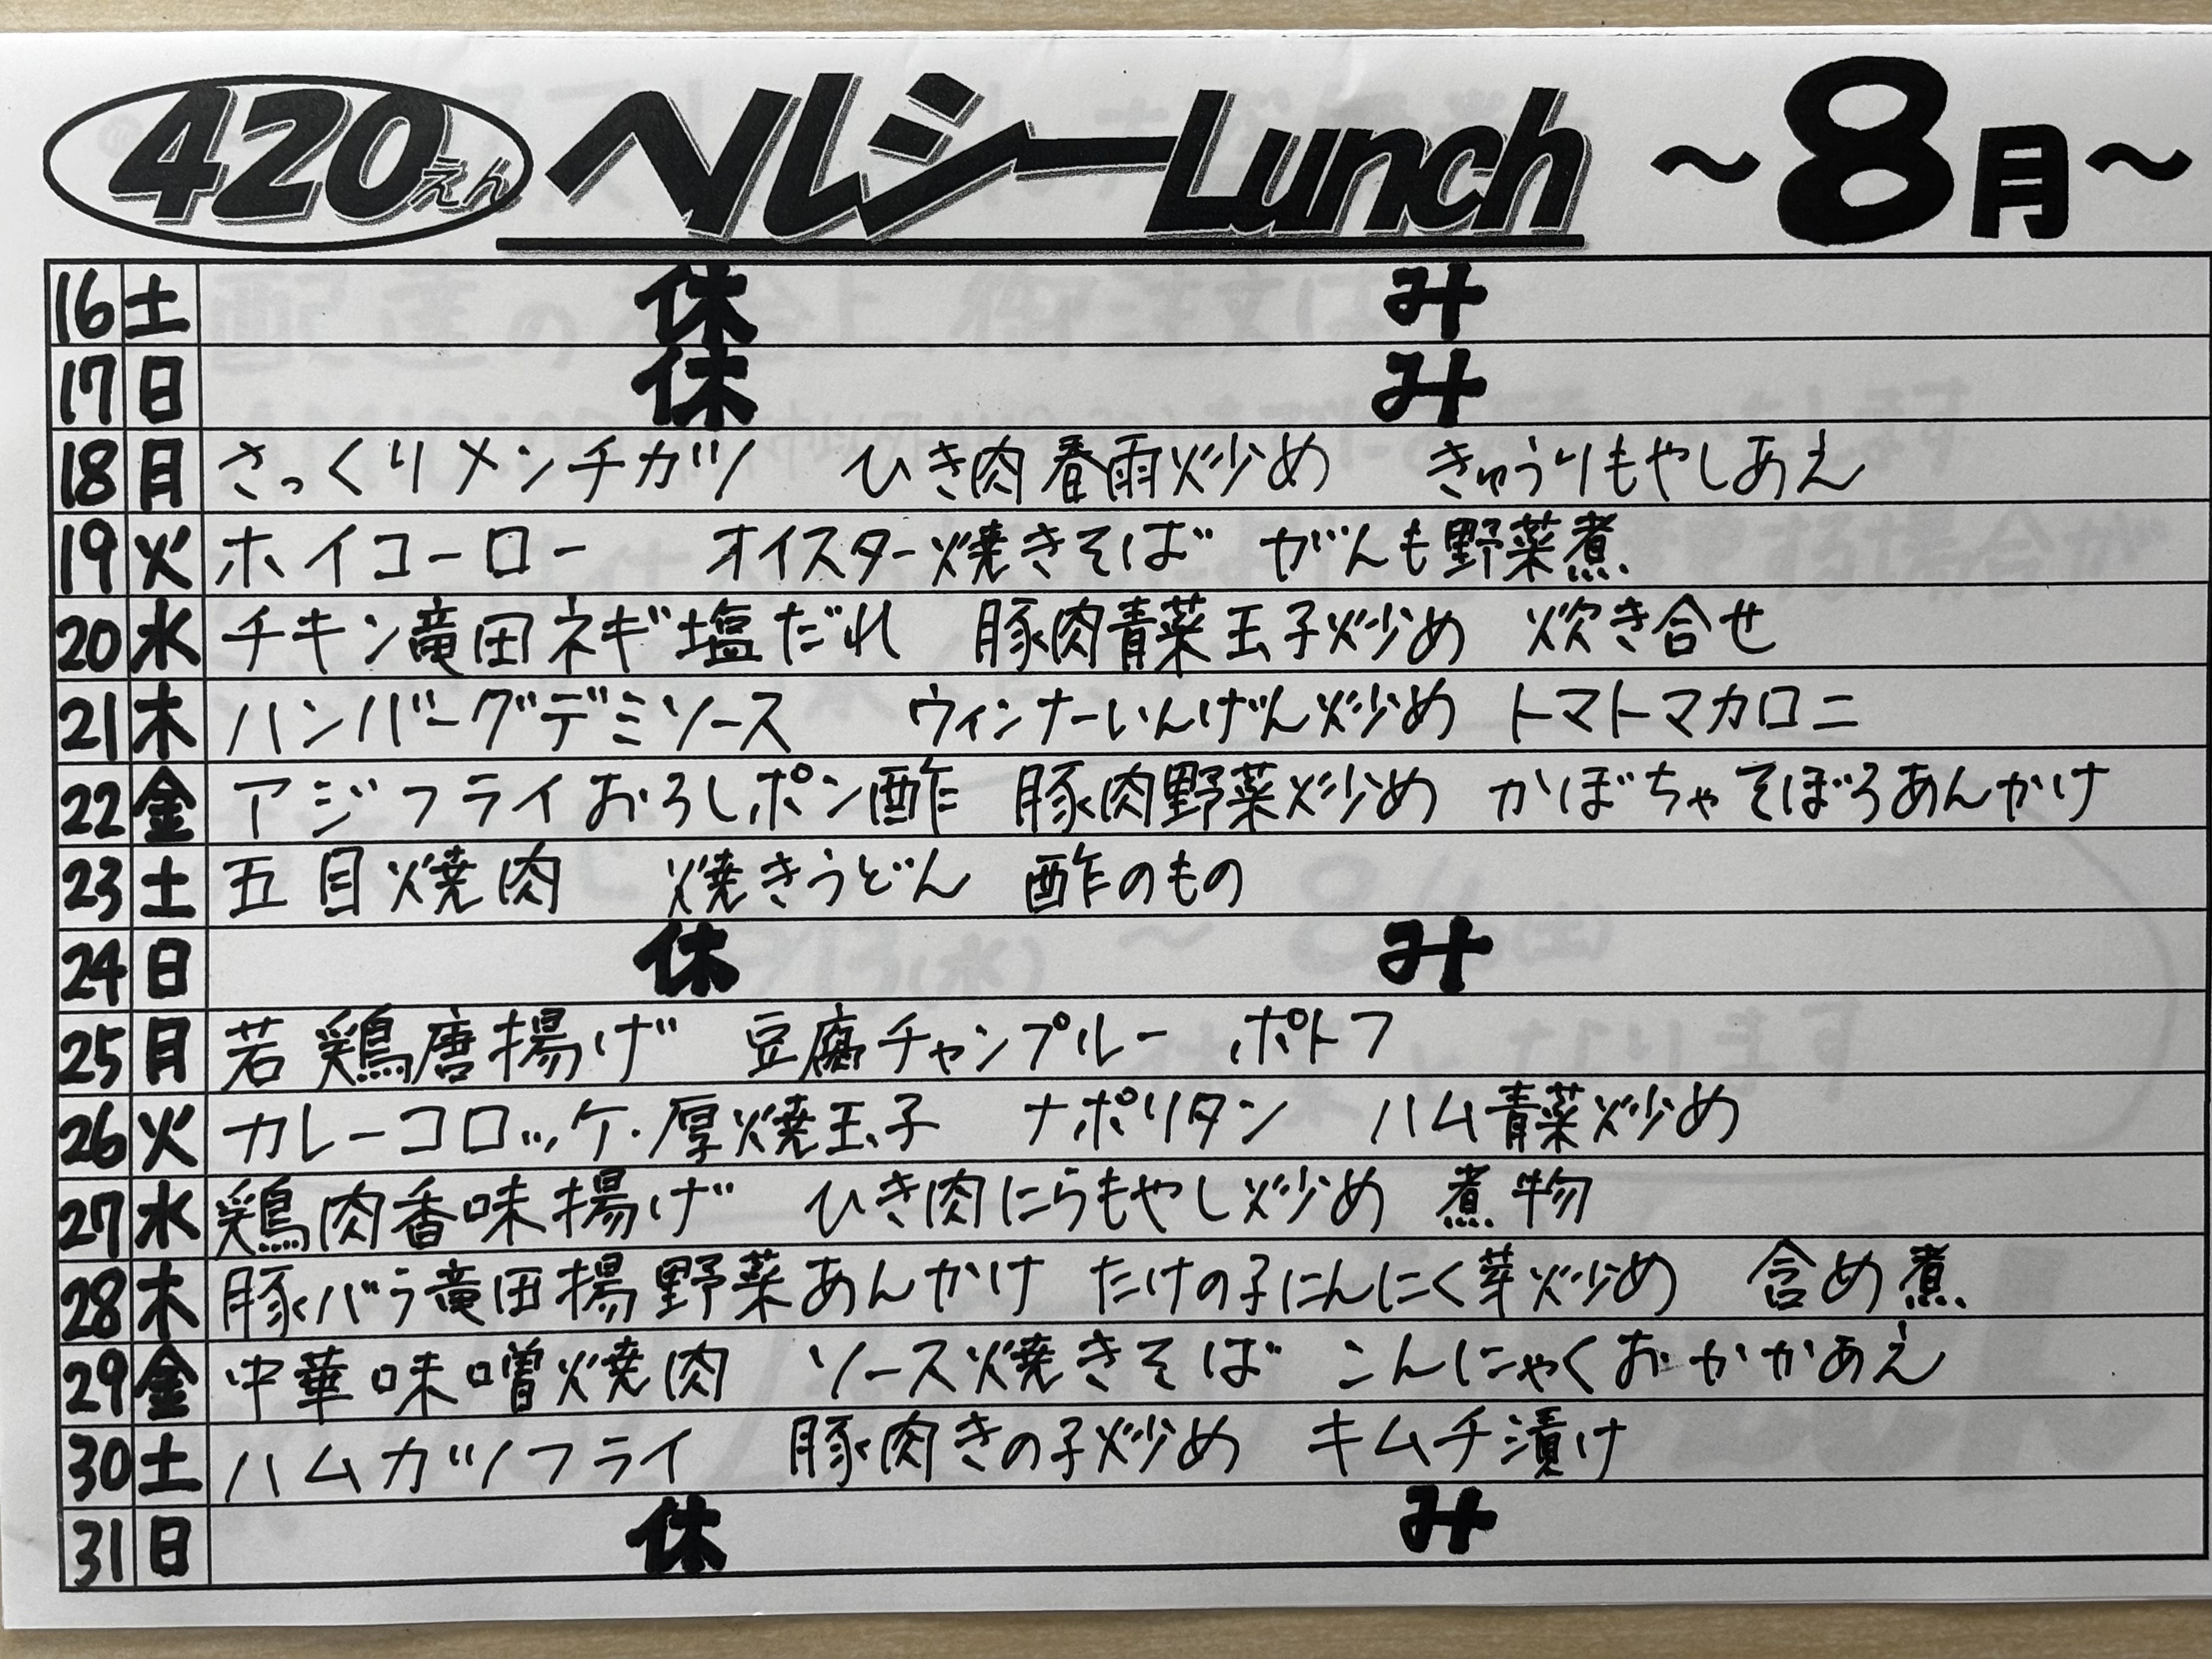 420えん ヘルシーLunch ～8月～
16 土 休み
17 日 休み
18 月 さっくりメンチカツ ひき肉春雨炒め きゅうりもやしあえ
19 火 ホイコーロー オイスター焼きそば がんも野菜煮
20 水 チキン竜田ネギ塩だれ 豚肉青菜玉子炒め 炊き合せ
21 木 ハンバーグデミソース ウィンナーいんげん炒め トマトマカロニ
22 金 アジフライおろしポン酢 豚肉野菜炒め かぼちゃそぼろあんかけ
23 土 五目焼肉 焼きうどん 酢のもの
24 日 休み
25 月 若鶏唐揚げ 豆腐チャンプルー ポトフ
26 火 カレーコロッケ・厚焼玉子 ナポリタン ハム青菜炒め
27 水 鶏肉香味揚げ ひき肉にらもやし炒め 煮物
28 木 豚バラ竜田揚野菜あんかけ たけの子にんにく芽炒め 含め煮
29 金 中華味噌焼肉 ソース焼きそば こんにゃくおかかあえ
30 土 ハムカツフライ 豚肉きの子炒め キムチ漬け
31 日 休み